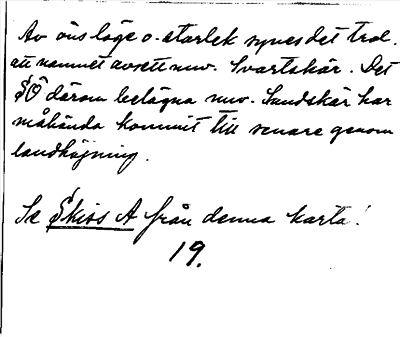 Av öns läge o. storlek synes det trol.
att namnet avsett nuv. Svartskär. Det
SÖ därom belägna nuv. Sandskär har
måhända kommit till senare genom
landhöjning.
Se Skiss A från denna karta!
19.